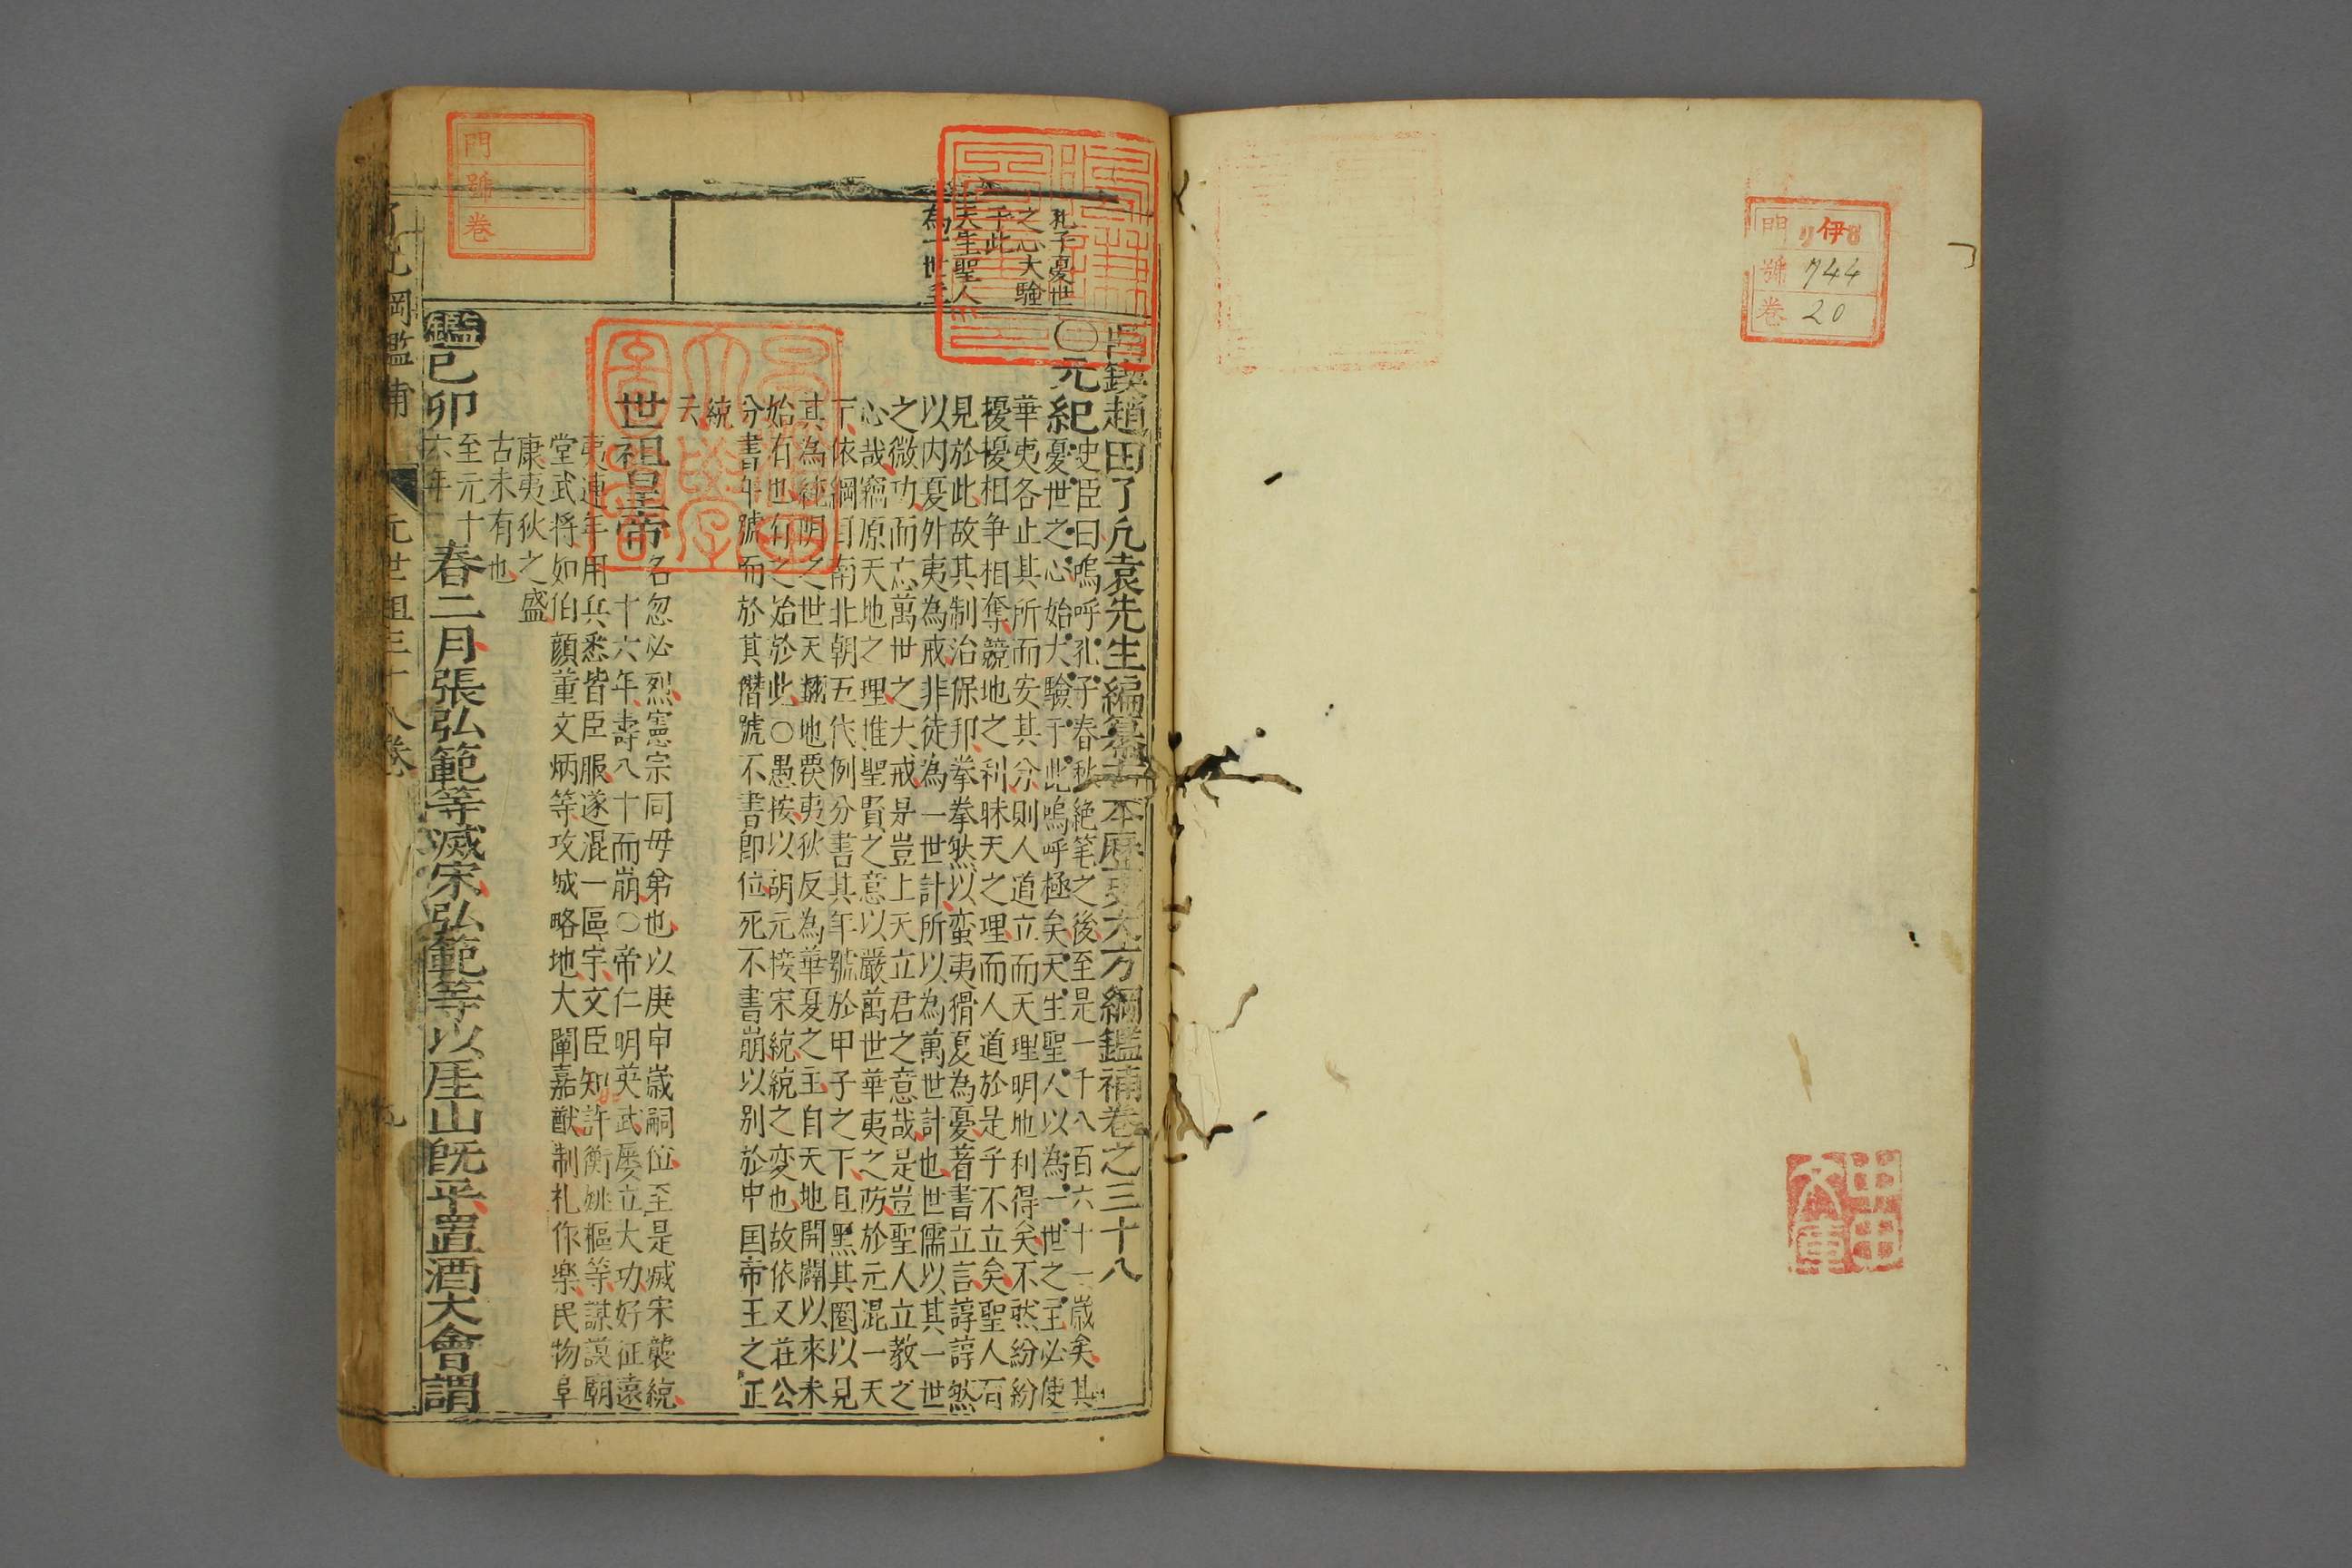 門 リ伊8
號 744
卷 20
孔子憂世
之心大驗
乎此
天生聖人
為一世主
門
號
卷
趙田了凡袁先生編纂古本歷史大方綱鑑補卷之三十八
元紀
史臣曰嗚呼孔子春秋絕笔之後至是一千八百六十一歲矣其
憂世之心始大驗于此嗚呼極矣天生聖人以為一世之主必使
華夷各止其所而安其分則人道立而天理明地利得矣不然紛紛
擾擾相争相奪競地之利昧天之理而人道於是乎不立矣聖人有
見於此故其制治保邦拳拳然以蛮夷猾夏為憂著書立言諄諄然
以内夏外夷為戒非徒為一世計所以為萬世計也世儒以其一世
之微功而忘萬世之大戒是豈上天立君之意哉是豈聖人立教之
心哉竊原天地之理惟聖賢之意以嚴萬世華夷之防於元混一天
下依綱目南北朝五代例分書其年號於甲子之下且黑其圈以見
其為統明之世天翻地覆夷狄反為華夏之主自天地開闢以來未
始有也有之始於此〇愚按以胡元接宋統統之変也故依又莊公
分書年號而於其僭號不書即位死不書崩以别於中国帝王之正
統
云
世祖皇帝
名忽必烈憲宗同母弟也以庚申歲嗣位至是滅宋襲統
十六年壽八十而崩〇帝仁明英武屡立大功好征遠
夷連年用兵悉皆臣服遂混一區宇文臣知許衡姚樞等謀謨廟
堂武将如伯顔董文炳等攻城略地大闡嘉猷制礼作楽民物阜
康夷狄之盛
古未有也
鑑己卯
至元十
六年
春二月張弘範等滅宋弘範等以厓山既平置酒大會謂
了凡綱鑑補 元世祖三十八卷